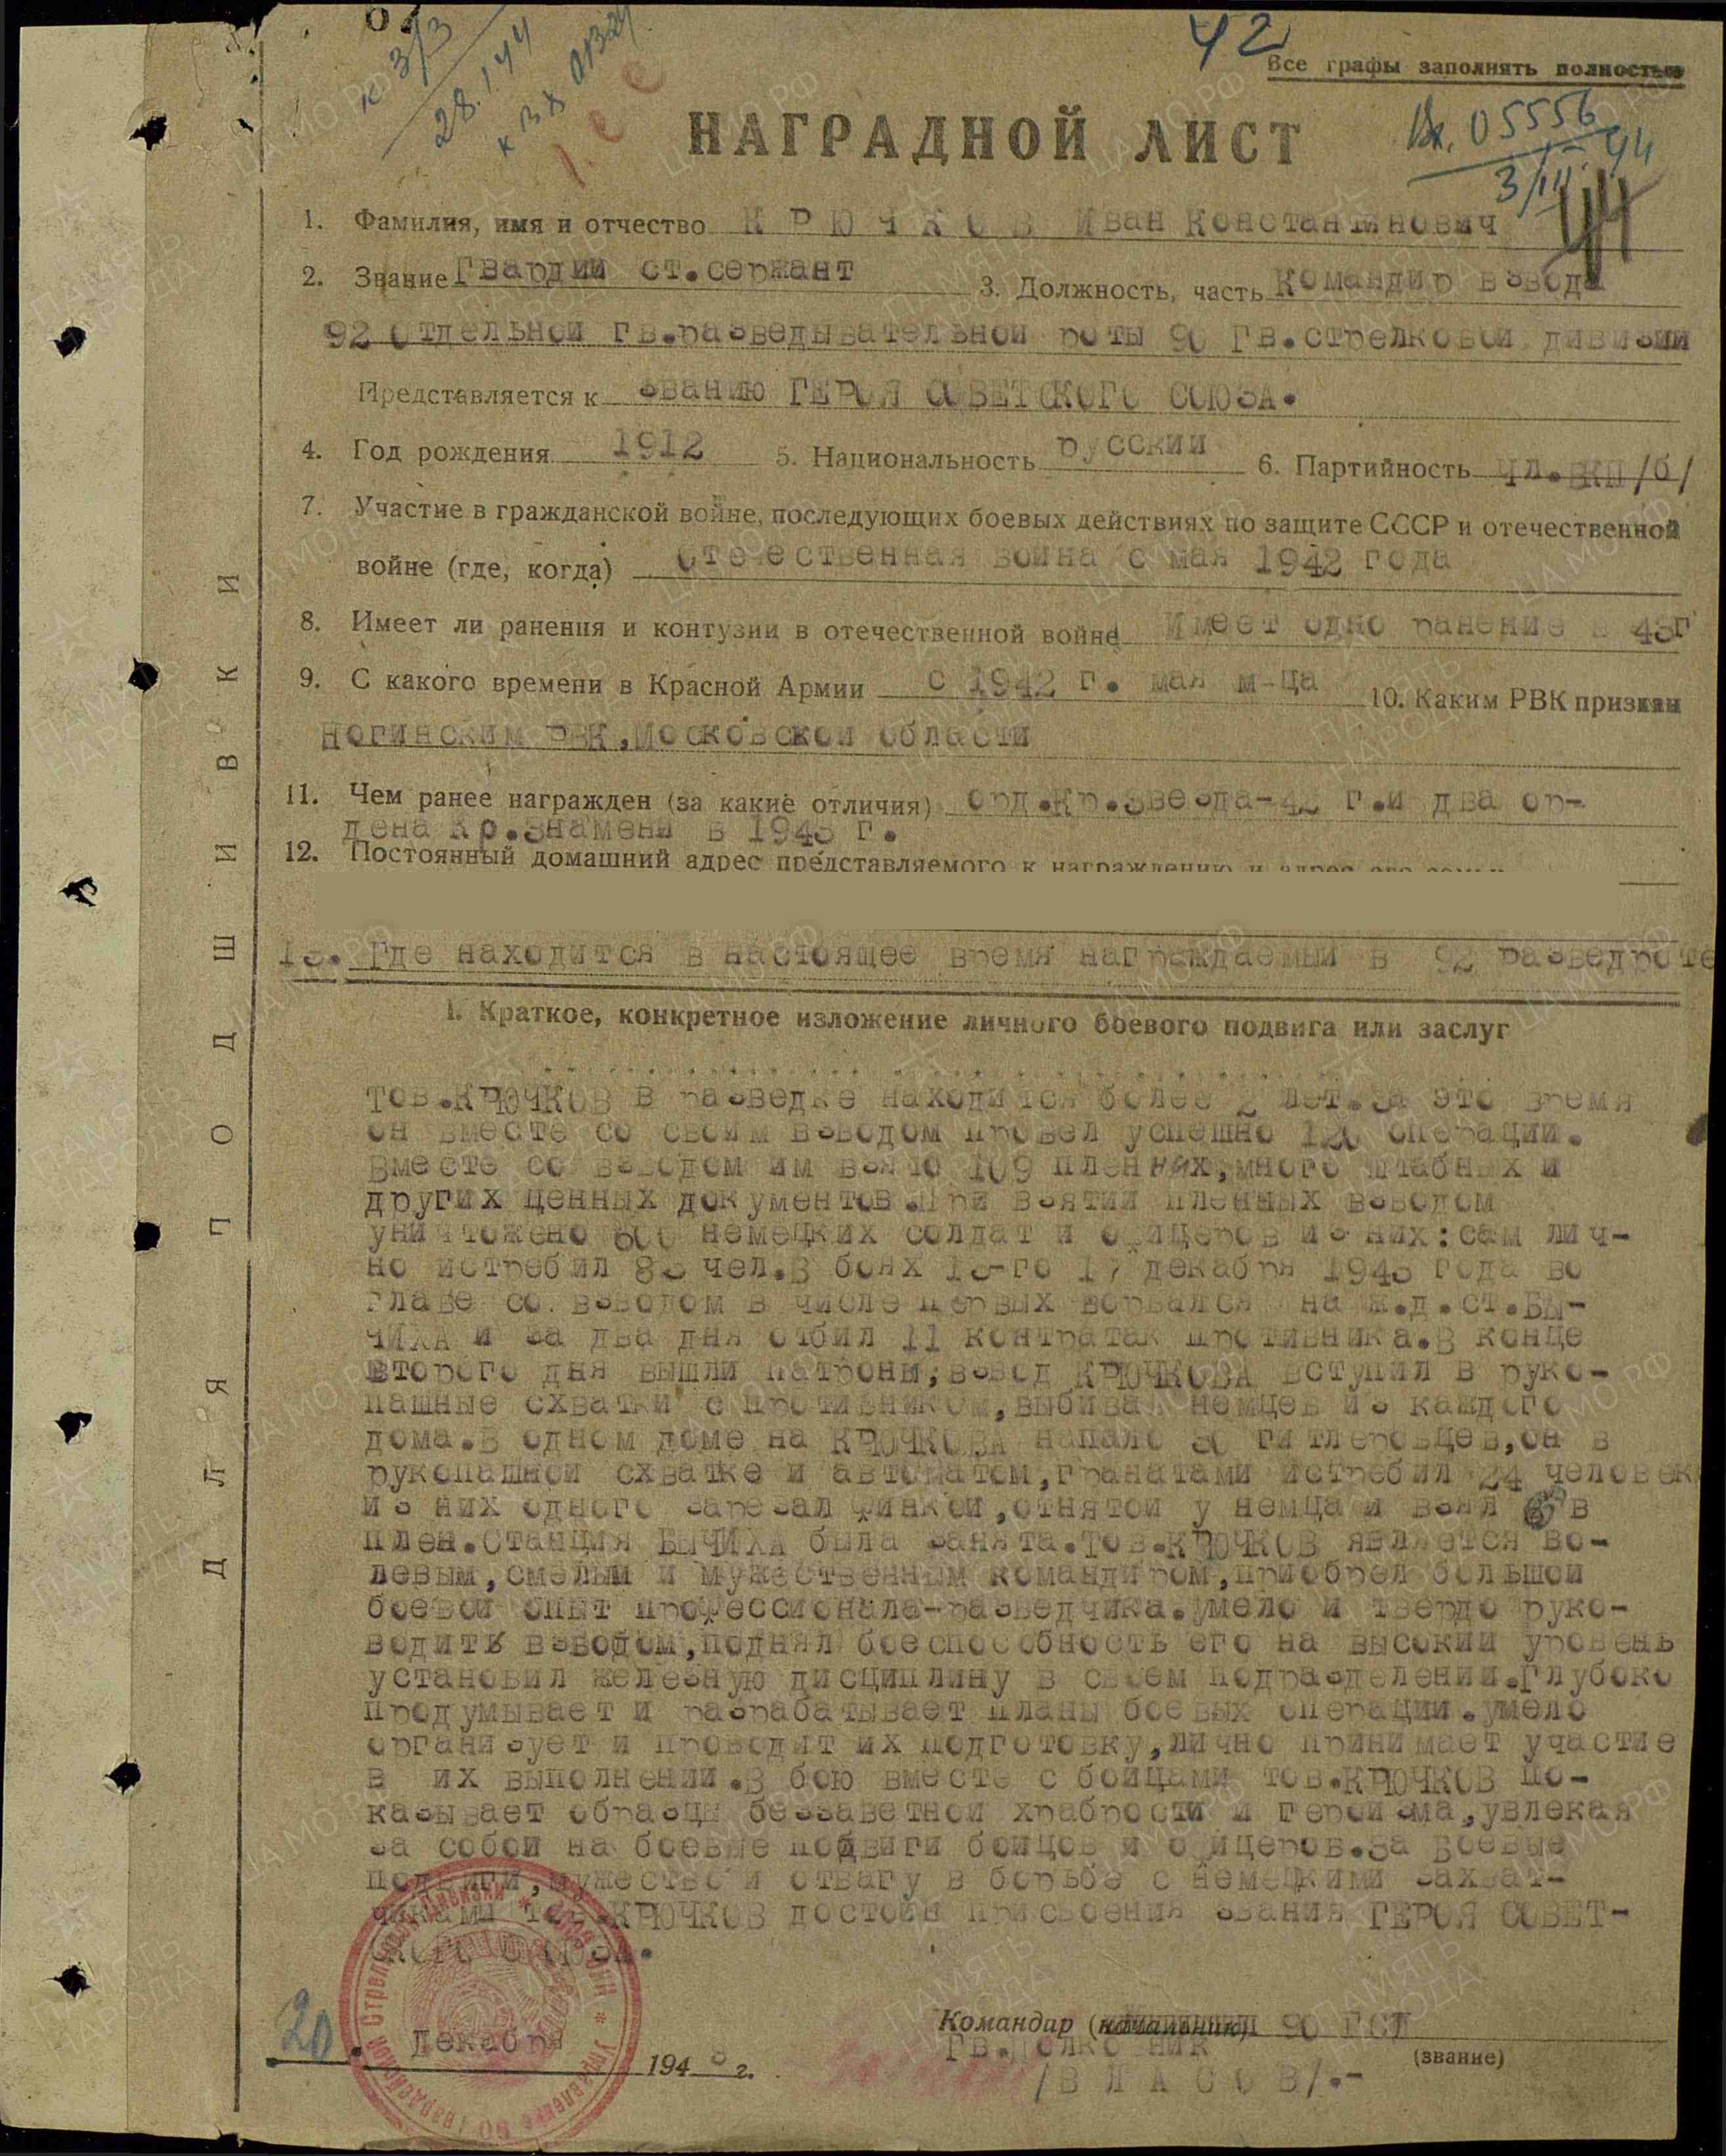 42
к 3/3
28.1 44
к вх
Все графы заполнять полностью
НАГРАДНОЙ ЛИСТ
Вх. 05556
3/III 44
44
1. Фамилия, имя и отчество КРЮЧКОВ Иван Константинович
2. Звание Гвардии ст.сержант 3. Должность, часть Командир взвода
92 Отдельной гв.разведывательной роты 90 Гв.стрелковой дивизии
Представляется к званию ГЕРОЯ СОВЕТСКОГО СОЮЗА.
4. Год рождения 1912 5. Национальность русский 6. Партийность чл.ВКП/б/
7. Участие в гражданской войне, последующих боевых действиях по защите СССР и отечественной
войне (где, когда) Отечественная война с мая 1942 года
8. Имеет ли ранения и контузии в отечественной войне Имеет одно ранение в 43г
9. С какого времени в Красной Армии с 1942 г. мая м-ца 10. Каким РВК призван
Ногинским РВК, Московской области
11. Чем ранее награжден (за какие отличия) орд.Кр.Звезда-42 г.и два ор-
дена Кр.Знамени в 1943 г.
12. Постоянный домашний адрес представляемого к награждению и адрес его семьи
13. Где находится в настоящее время награждаемый в 92 разведроте
I. Краткое, конкретное изложение личного боевого подвига или заслуг
Тов.КРЮЧКОВ в разведке находится более 2 лет.За это время
он вместе со своим взводом провел успешно 120 операций.
Вместе со взводом им взято 109 пленных,много штабных и
других ценных документов.При взятии пленных взводом
уничтожено 600 немецких солдат и офицеров из них:сам лич-
но истребил 83 чел.В боях 13-го 17 декабря 1943 года во
главе со взводом в числе первых ворвался на ж.д.ст.БЫ-
ЧИХА и за два дня отбил 11 контратак противника.В конце
второго дня вышли патроны;взвод КРЮЧКОВА вступил в руко-
пашные схватки с противником,выбивал немцев из каждого
дома.В одном доме на КРЮЧКОВА напало 30 гитлеровцев,он в
рукопашной схватке и автоматом,гранатами истребил 24 человек
из них одного зарезал финкой,отнятой у немца и взял в
плен.Станция БЫЧИХА была занята.Тов.КРЮЧКОВ является во-
левым,смелым и мужественным командиром,приобрел большой
боевой опыт профессионала-разведчика.Умело и твердо руко-
водить взводом,поднял боеспособность его на высокий уровень
установил железную дисциплину в своем подразделении.Глубоко
продумывает и разрабатывает планы боевых операций.Умело
организует и проводит их подготовку,лично принимает участие
в их выполнении.В бою вместе с бойцами тов.КРЮЧКОВ по-
казывает образцы беззаветной храбрости и героизма,увлекая
за собой на боевые подвиги бойцов и офицеров.За боевые
подвиги,мужество и отвагу в борьбе с немецкими захват-
чиками тов.КРЮЧКОВ достоин присвоения звания ГЕРОЯ СОВЕТ-
СКОГО СОЮЗА.
Командир (начальник) 90 ГСД
(звание)
Гв.полковник
/ВЛАСОВ/.-
20. Декабря 1943 г.
ДЛЯ ПОДШИВКИ